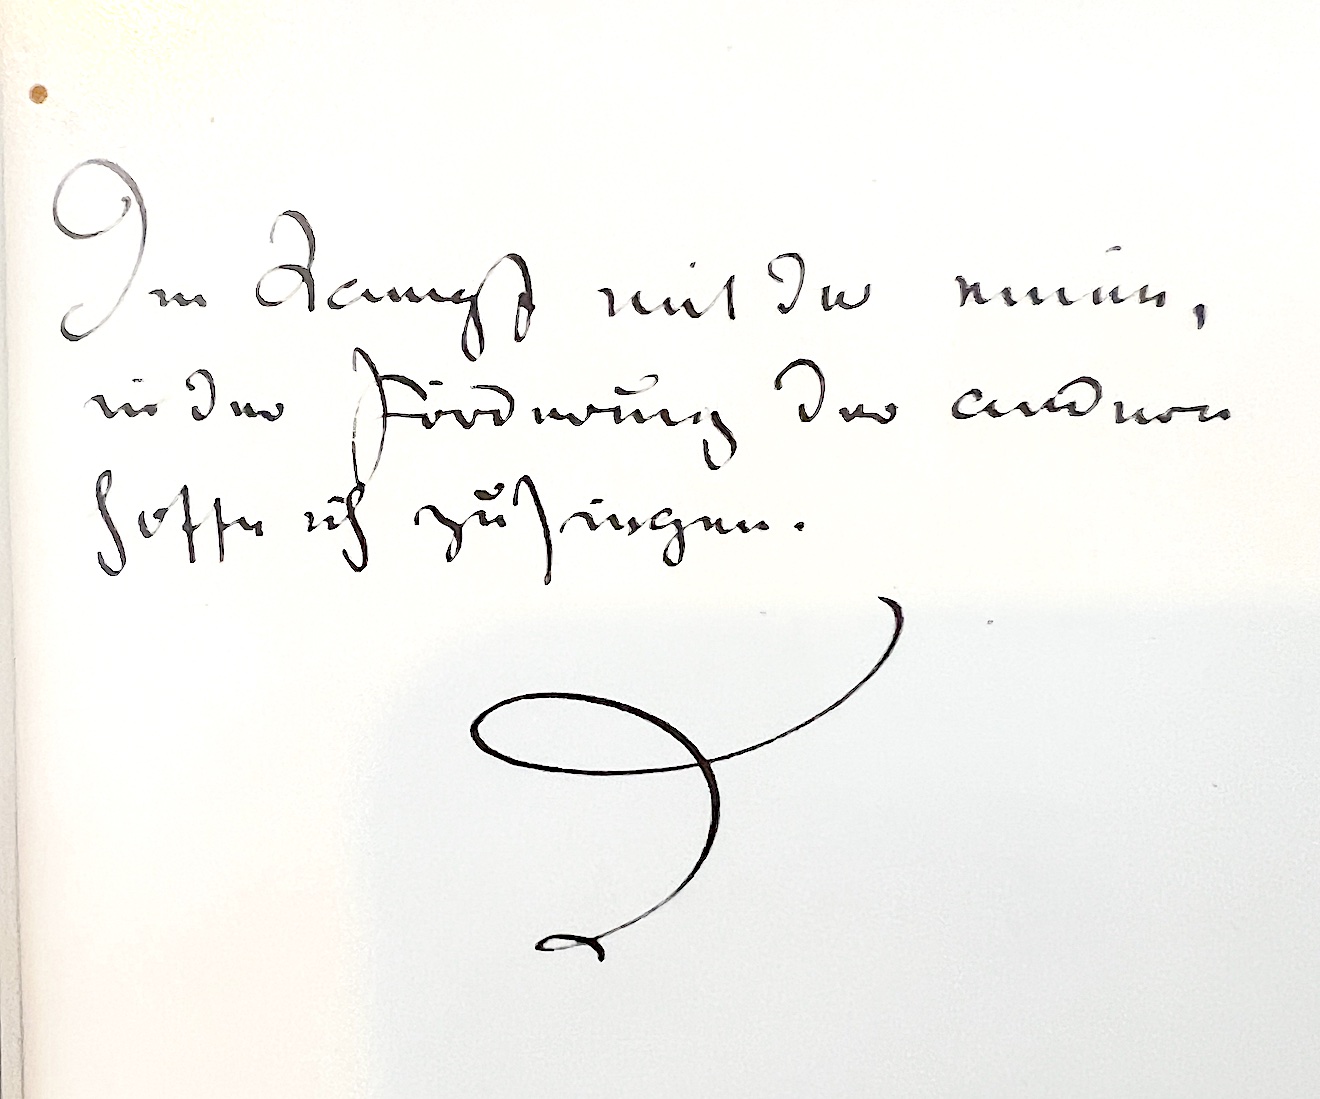 Im Kampf mit der einen,
in der Förderung der anderen
hoffe ich zu siegen.